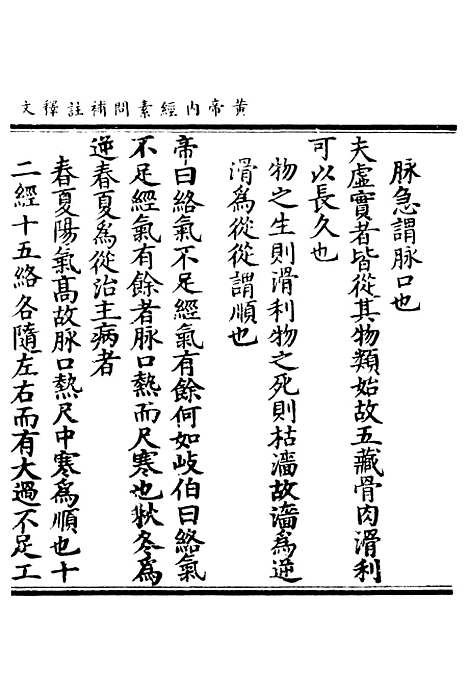 黃帝内經素問補註釋文
脉急謂脉口也
夫虛實者皆從其物類始故五藏骨肉滑利
可以長久也
物之生則滑利物之死則枯濇故濇爲逆
滑爲從從謂順也
帝曰絡氣不足經氣有餘何如岐伯曰絡氣
不足經氣有餘者脉口熱而尺寒也秋冬爲
逆春夏爲從治主病者
春夏陽氣髙故脉口熱尺中寒爲順也十
二經十五絡各隨左右而有大過不足工